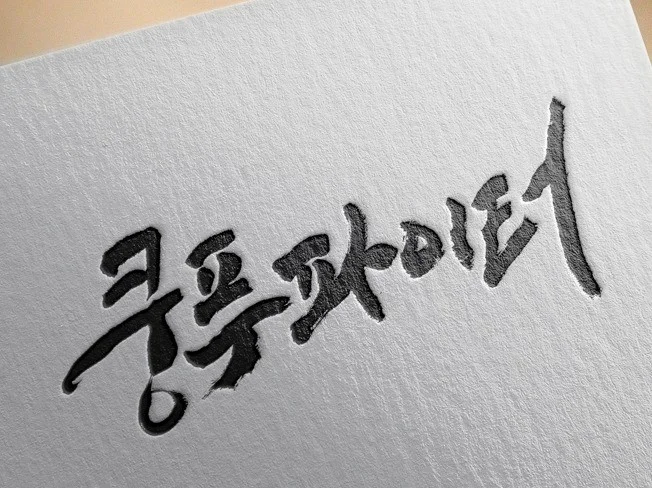 쿵푸파이터